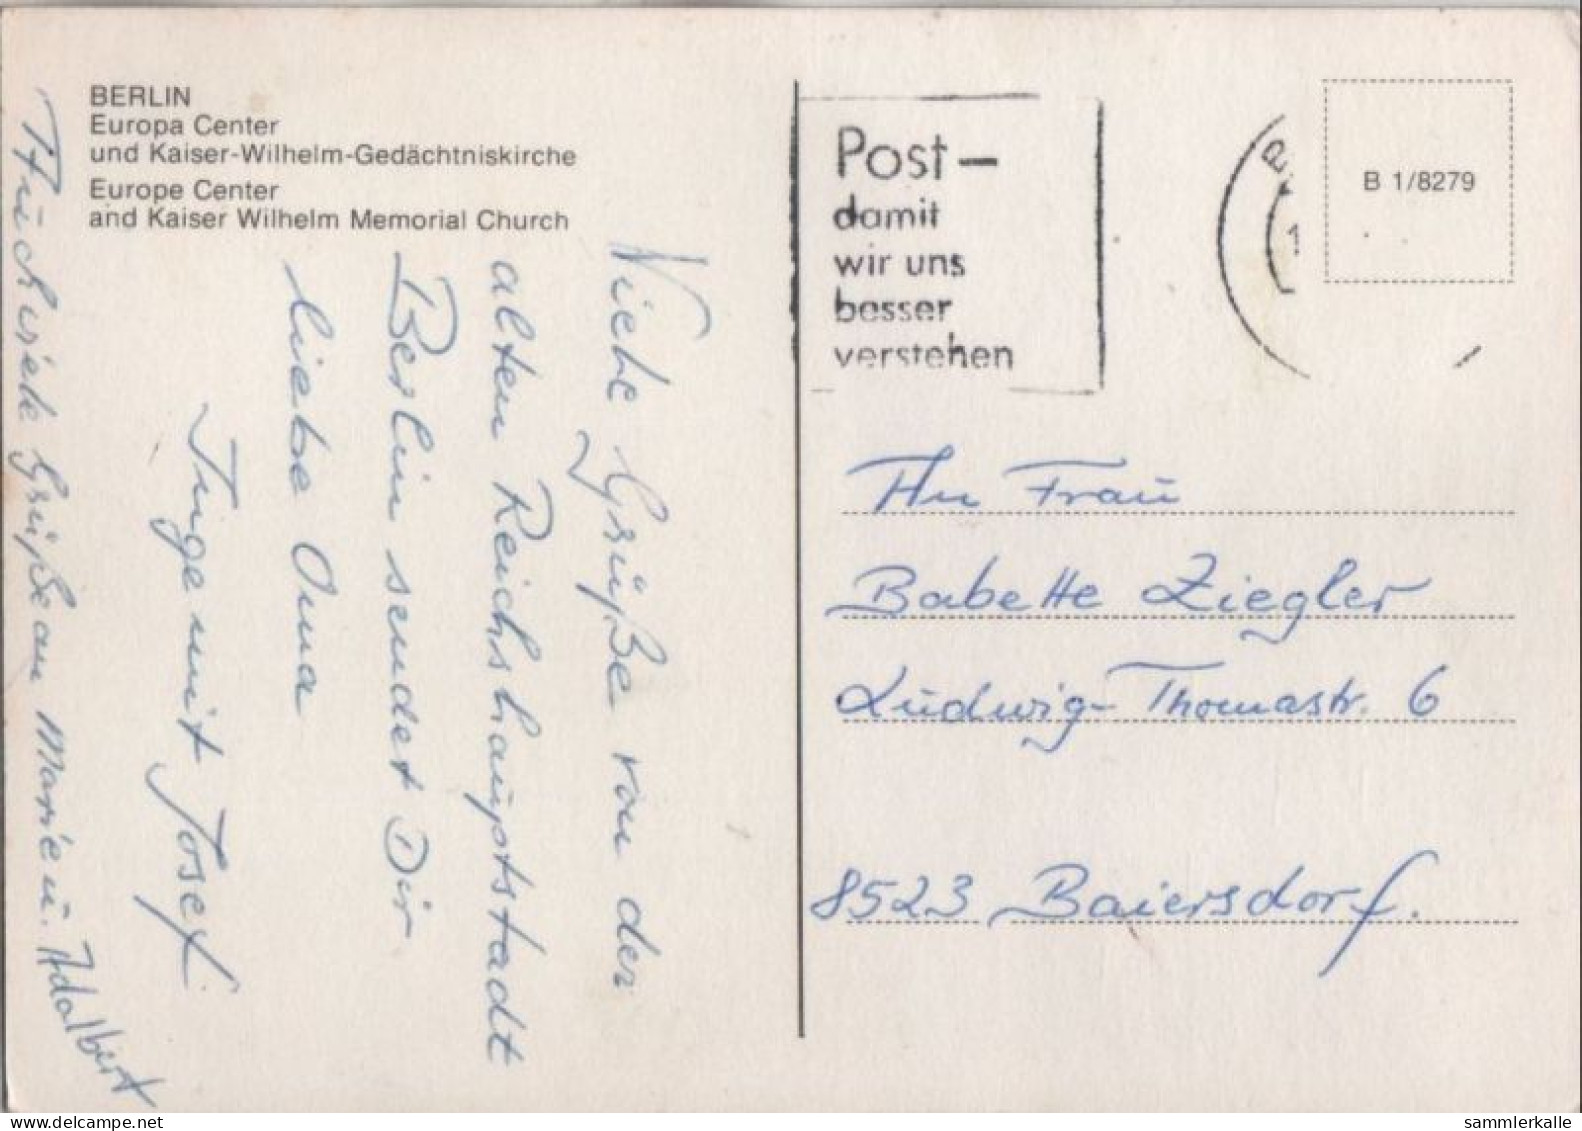 BERLIN
Europa Center
und Kaiser-Wilhelm-Gedächtniskirche
Europe Center
and Kaiser Wilhelm Memorial Church
Viele Grüße von der
alten Reichshauptstadt
Berlin sendet Dir
liebe Oma
Inge mit Josef
Grüße an Marie u. Adalbert
Post –
damit
wir uns
besser
verstehen
B 1/8279
An Frau
Babette Ziegler
Ludwig-Thomastr. 6
8523 Baiersdorf.
www.delcampe.net
sammlerkalle